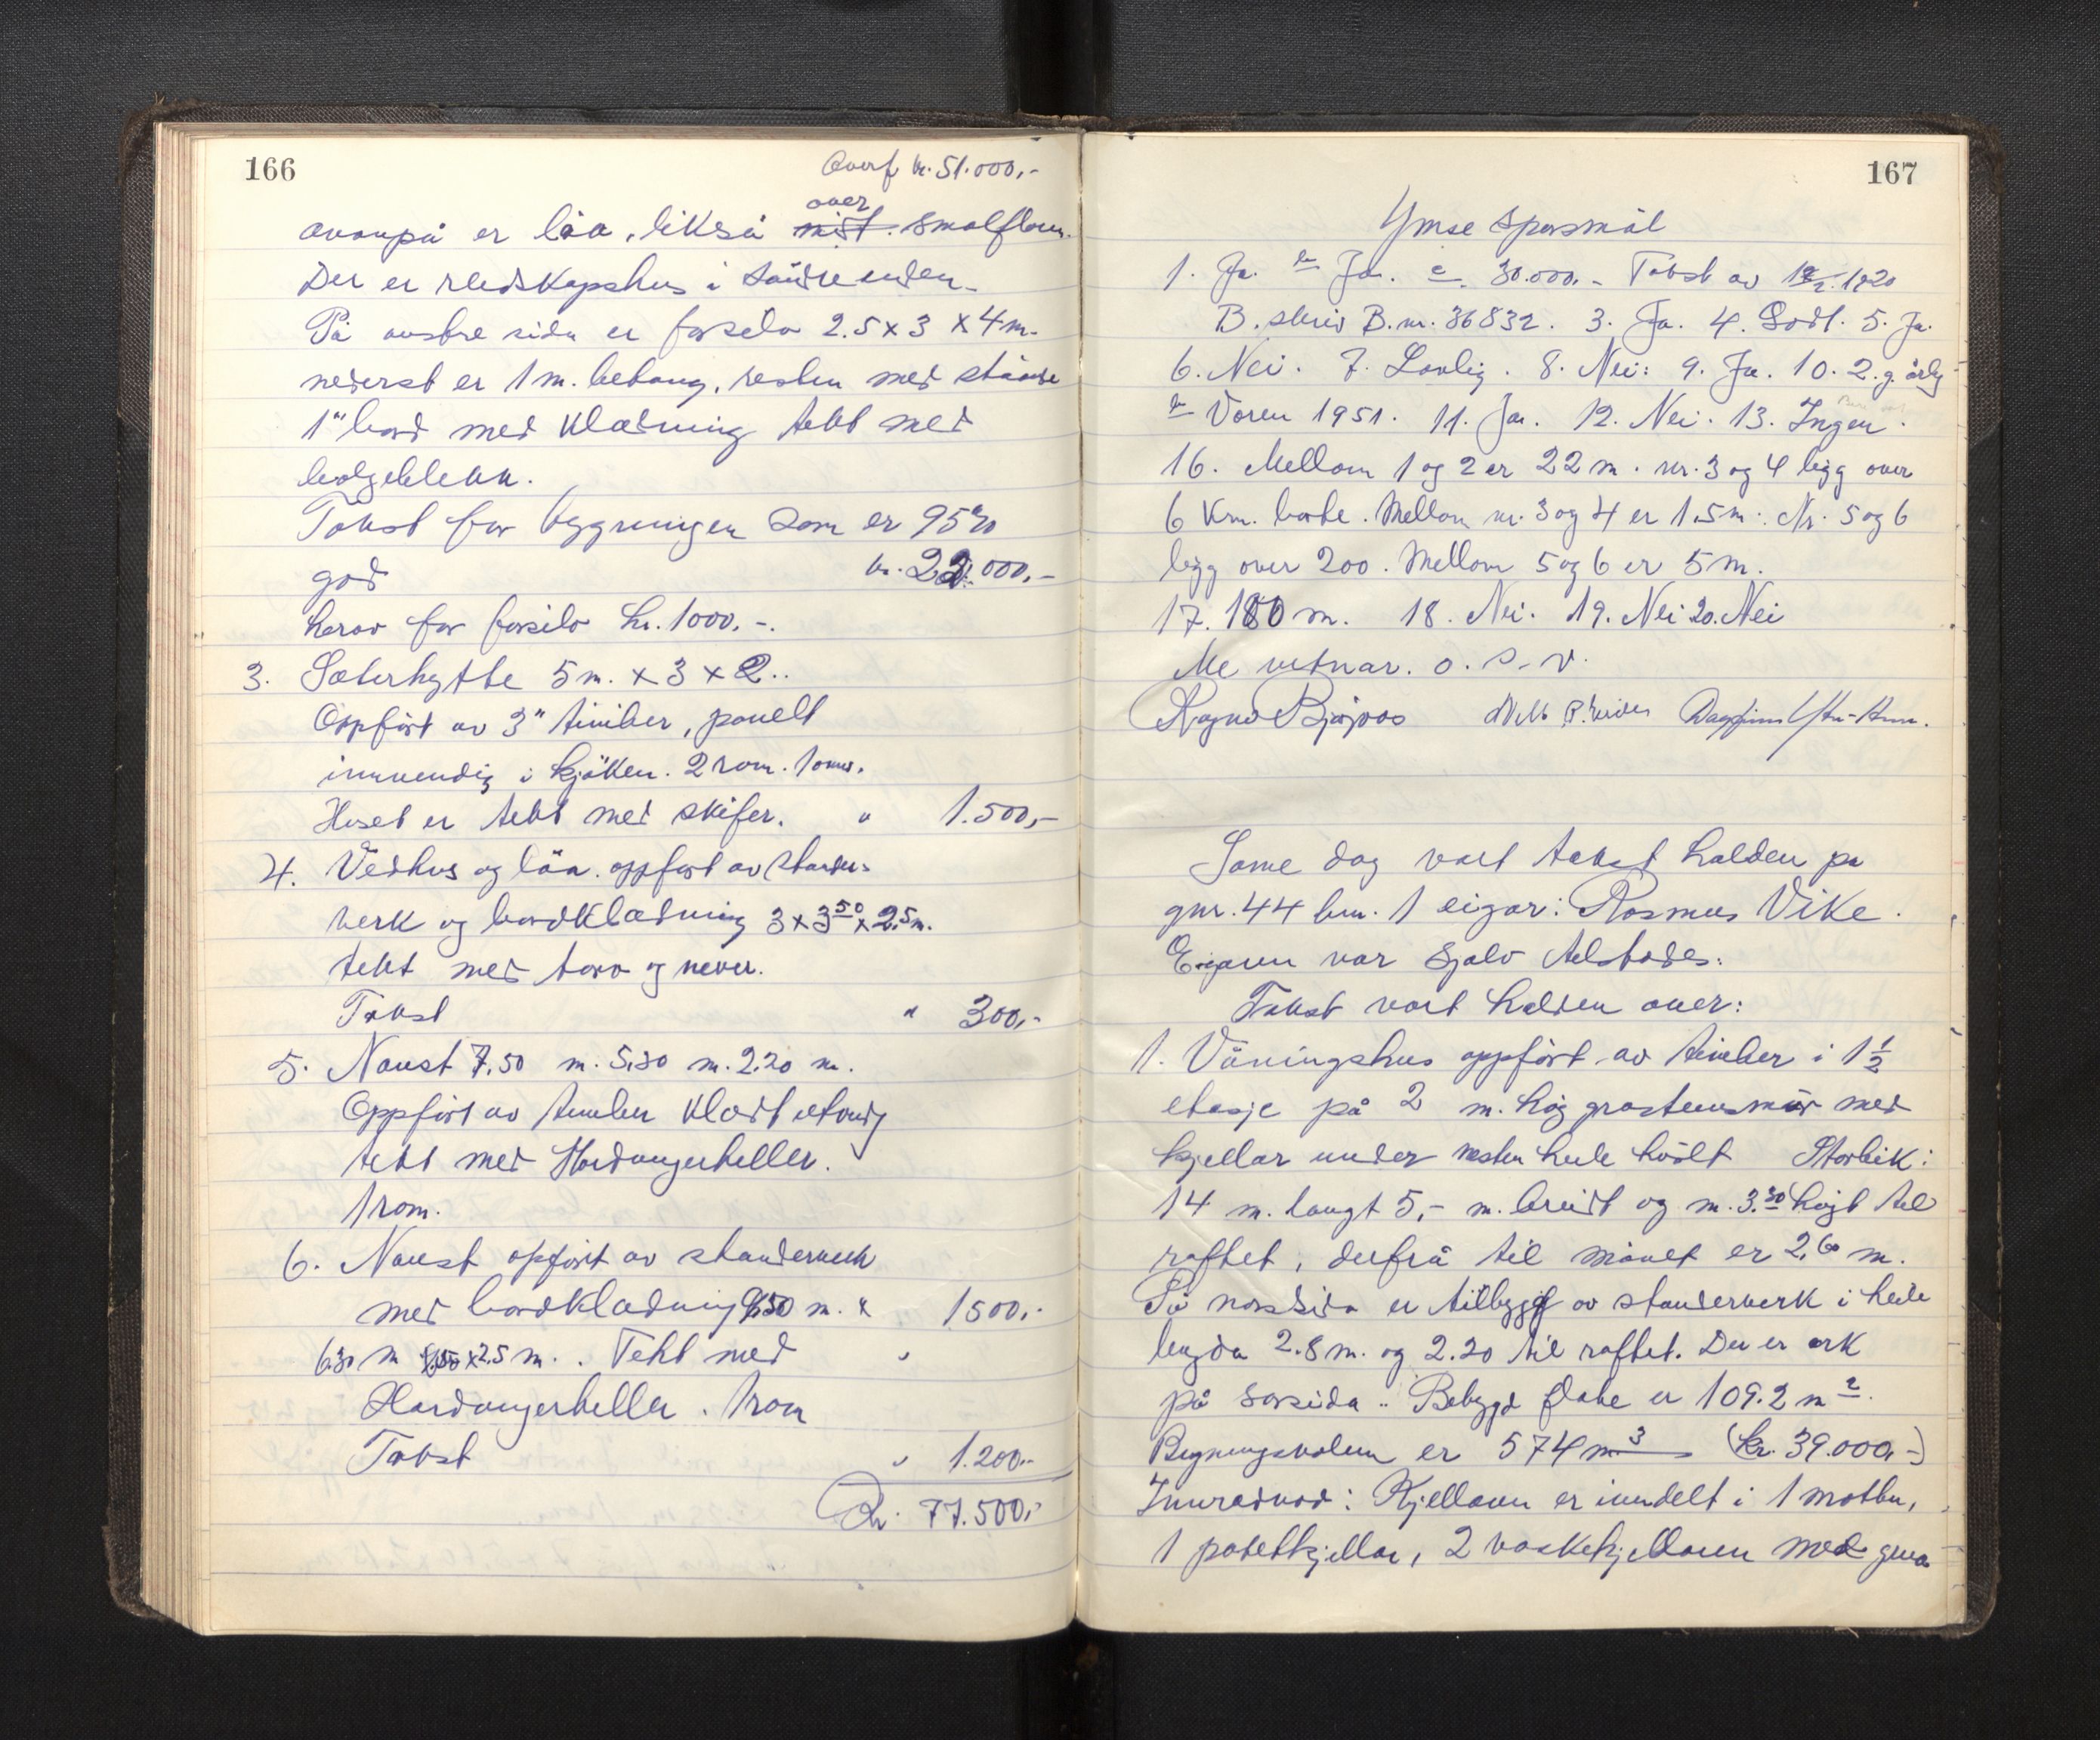 166
Overf kr. 51.000,-
over
ovanpå er löa, likså mist. smalfloren.
Der er reidskapshus i søndre enden.
På austre sida er forsilo 2.5 x 3 x 4 m.
nederst er 1 m. betong, resten med stående
1" bord med klædning tekt med
bølgeblekk.
Takst for bygningen som er 95%
god kr. 22.000,-
herav for forsilo kr. 1000,-.
3. Sæterhytte 5 m. x 3 x 2..
Oppført av 3" timber, panelt
innvendig i kjøken. 2 rom. 1 omn.
Huset er tekt med skifer. " 1.500,-
4. Vedhus og löa oppført av stander-
verk og bordklædning 3 x 3 50 x 2.5 m.
tekt med torv og never.
Takst " 300,-
5. Naust 7,50 m. 5,30 m. 2,20 m.
Oppført av timber klædt utvendig
tekt med Hardangerheller.
1 rom. 
6. Naust oppført av standerverk
med bordklædning 9,50 m. " 1500,-
6.30 m x 2.5 m. . Tekt med "
Hardangerheller. 1 rom
Takst " 1.200,-
Kr. 77.500,-
167
Ymse spørsmål
1. Ja. b Ja. c. 30.000,- Takst av 1920
B. skriv B.nr. 36832. 3. Ja. 4. Godt. 5. Ja.
6. Nei. 7. Lovlig. 8. Nei: 9. Ja. 10. 2. g. årlig
b Våren 1951. 11. Ja. 12. Nei. 13. Ingen.
16. Mellom 1 og 2 er 22 m. nr. 3 og 4 ligg over
6 km. borte. Mellom nr. 3 og 4 er 1.5 m. Nr. 5 og 6
ligg over 200. Mellom 5 og 6 er 5 m.
17. 180 m. 18. Nei. 19. Nei 20. Nei
Me vitnar. o. s. v.
Same dag vart takst halden på
gnr. 44 bnr. 1 eigar: Rasmus Vike.
Eigaren var sjølv tilstades.
Takst vart halden over:
1. Våningshus oppført av timber i 1 1/2
etasje på 2 m. høg gråsteinsmúr med
kjellar under nesten heile huset Storleik:
14 m. langt 5,- m. breidt og m. 3.30 høgt til
raftet, derfrå til mønet er 2,60 m.
På nordsida er tilbygg av standerverk i heile
lengda 2.8 m. og 2.20 til raftet. Der er ark
på sørsida .. Bebygd flate er 109.2 m 2.
Bygningsvolum er 574 m 3 (kr. 39.000,-)
Innreidnad: Kjellaren er inndelt i 1 matbu,
1 potetkjellar, 2 vaskekjellaren med grua